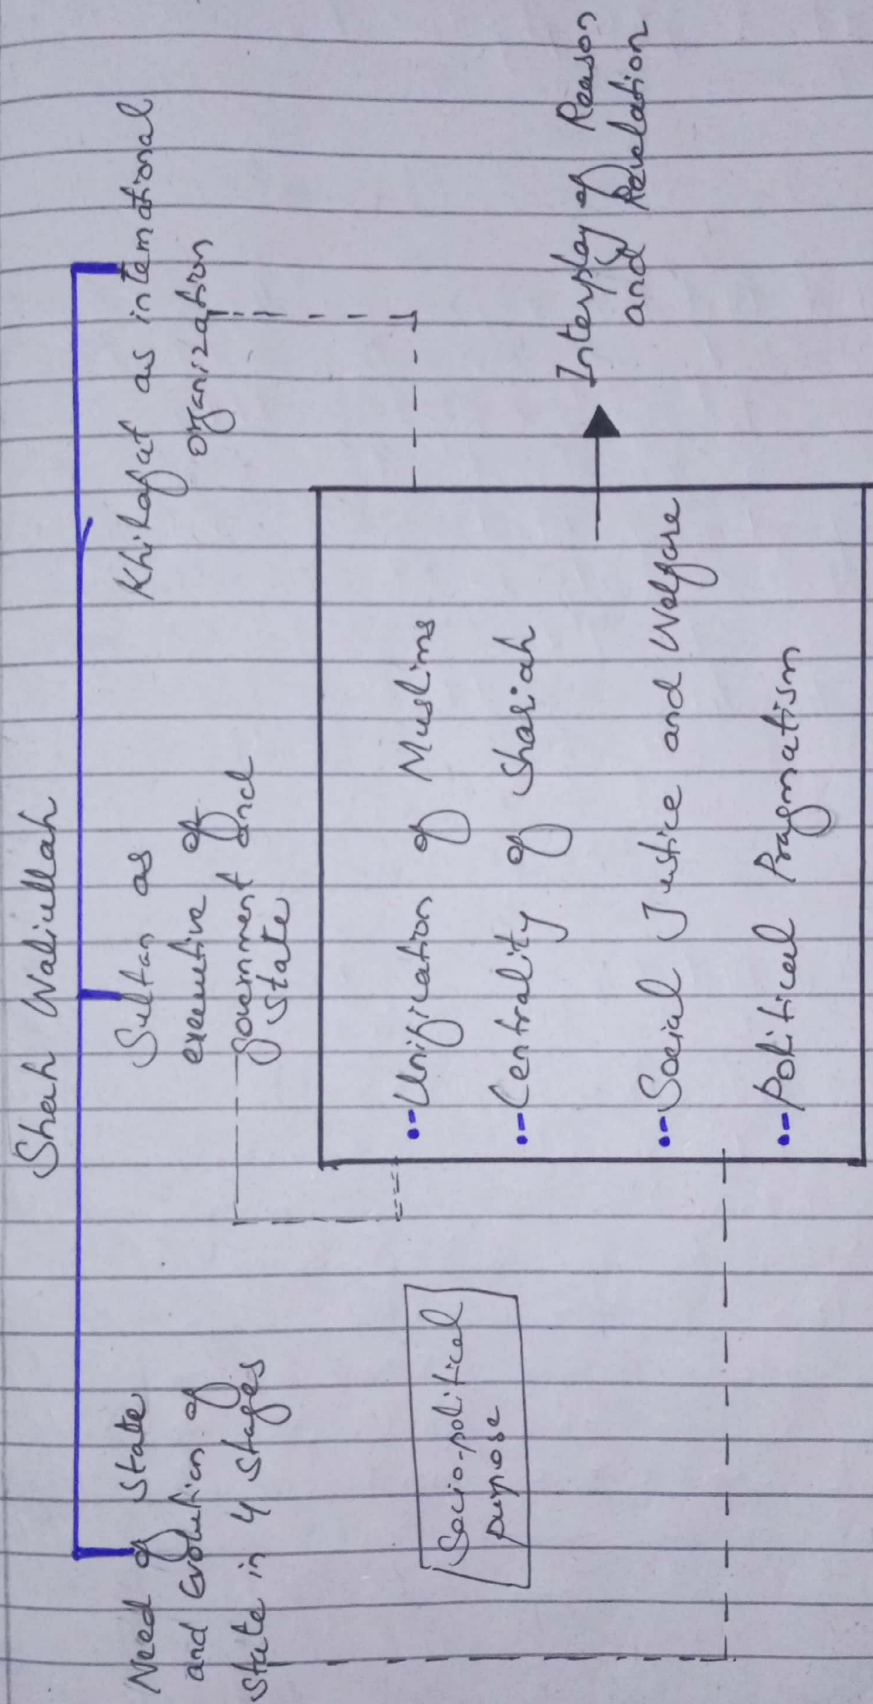 Shah Waliullah
Need of State
and Evolution of
State in 4 Stages
Sultan as
executive of
government and
state
Khilafat as international
organization
Socio-political
purpose
Unification of Muslims
Centrality of Shariah
Social Justice and Welfare
Political Pragmatism
Interplay of Reason
and Revelation